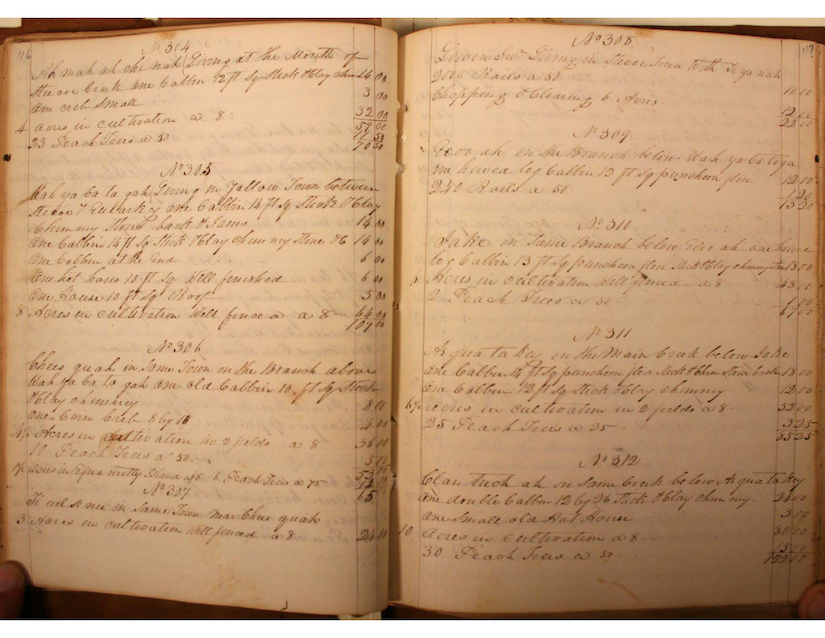 116
No 304
Ah mah ah che nah Living at the Mouth of
Stecoe Creek one Cabbin 12 ft Sq Stick & Clay chim 16 00
One crib Small 3 00
4 Acres in cultivation a 8 32 00
23 Peach Trees a 50 11 50
No 305
Wah ya ca ta gah Living in Yallow Town between
Stecoe & one Cabbin 14 ft Sq Stick & Clay
Chimney Stone back & Jams 14 00
One Cabbin 14 ft Sq Stick & Clay chimney Stone 14 00
One Cabbin at the End 6 00
One hot house 10 ft Sq Well finished 6 00
One House 10 ft Sq Roof 5 00
8 Acres in cultivation Well fence a 8 64 00
109 00
No 306
Chees quah in Same Town on the Branch above
Wah ya ca ta gah one old Cabbin 10 ft Sq Stick
& Clay chimney 8 00
One Corn Crib 8 by 4 00
4½ Acres in cultivation in 2 fields a 8 36 00
11 Peach Trees a 50 5 50
Acres in 6 Peach Trees a 75
No 307
in Same Town Near Chees quah
3 Acres in cultivation Well fenced a 8 24 00
117
No 308
Living in Stecoe Town With
2000 Rails a 50 10 00
Chopping & Clearing 6 Acres 12 00
22 00
No 309
on the Branch below Wah ya ca ta ga
one hewed log Cabbin 13 ft Sq puncheon floor 12 00
240 Rails a 50 1 20
13 20
No 310
Jake on Same Branch below one hewed
log Cabbin 13 ft Sq puncheon floor Stick & Clay chimney 18 00
Acres in cultivation Well fenced a 8
2 Peach Trees a 50 1 00
67 00
No 311
A qua ta key on the Main Creek below Jake
one Cabbin 14 ft Sq puncheon floor Stick & Clay 18 00
One Cabbin 12 ft Sq Stick & Clay chimney 12 00
Acres in cultivation in 2 fields a 8 52 00
25 Peach Trees a 25
No 312
Clan tuck ah on Same Creek below A qua ta key
One double Cabbin 12 by 26 Stick & Clay chimney
One Small old Hot House 3 00
10 Acres in cultivation a 8 80 00
30 Peach Trees a 50 15 00
122 00